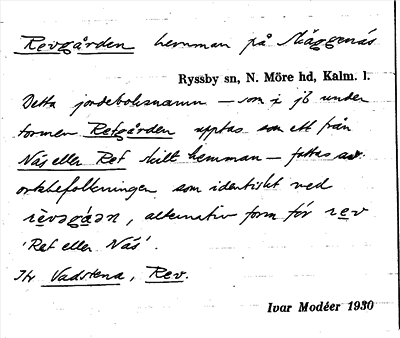 Revgården hemman på Skäggenäs
Ryssby sn, N. Möre hd, Kalm. l.
Detta jordeboksnamn — som i jb under
formen Refgården upptas som ett från
Näs eller Ref skilt hemman — fattas av
ortsbefolkningen som identiskt ved
, alternativ form för rev
'Ref eller Näs'.
Jfr Vadstena, Rev.
Ivar Modéer 1930